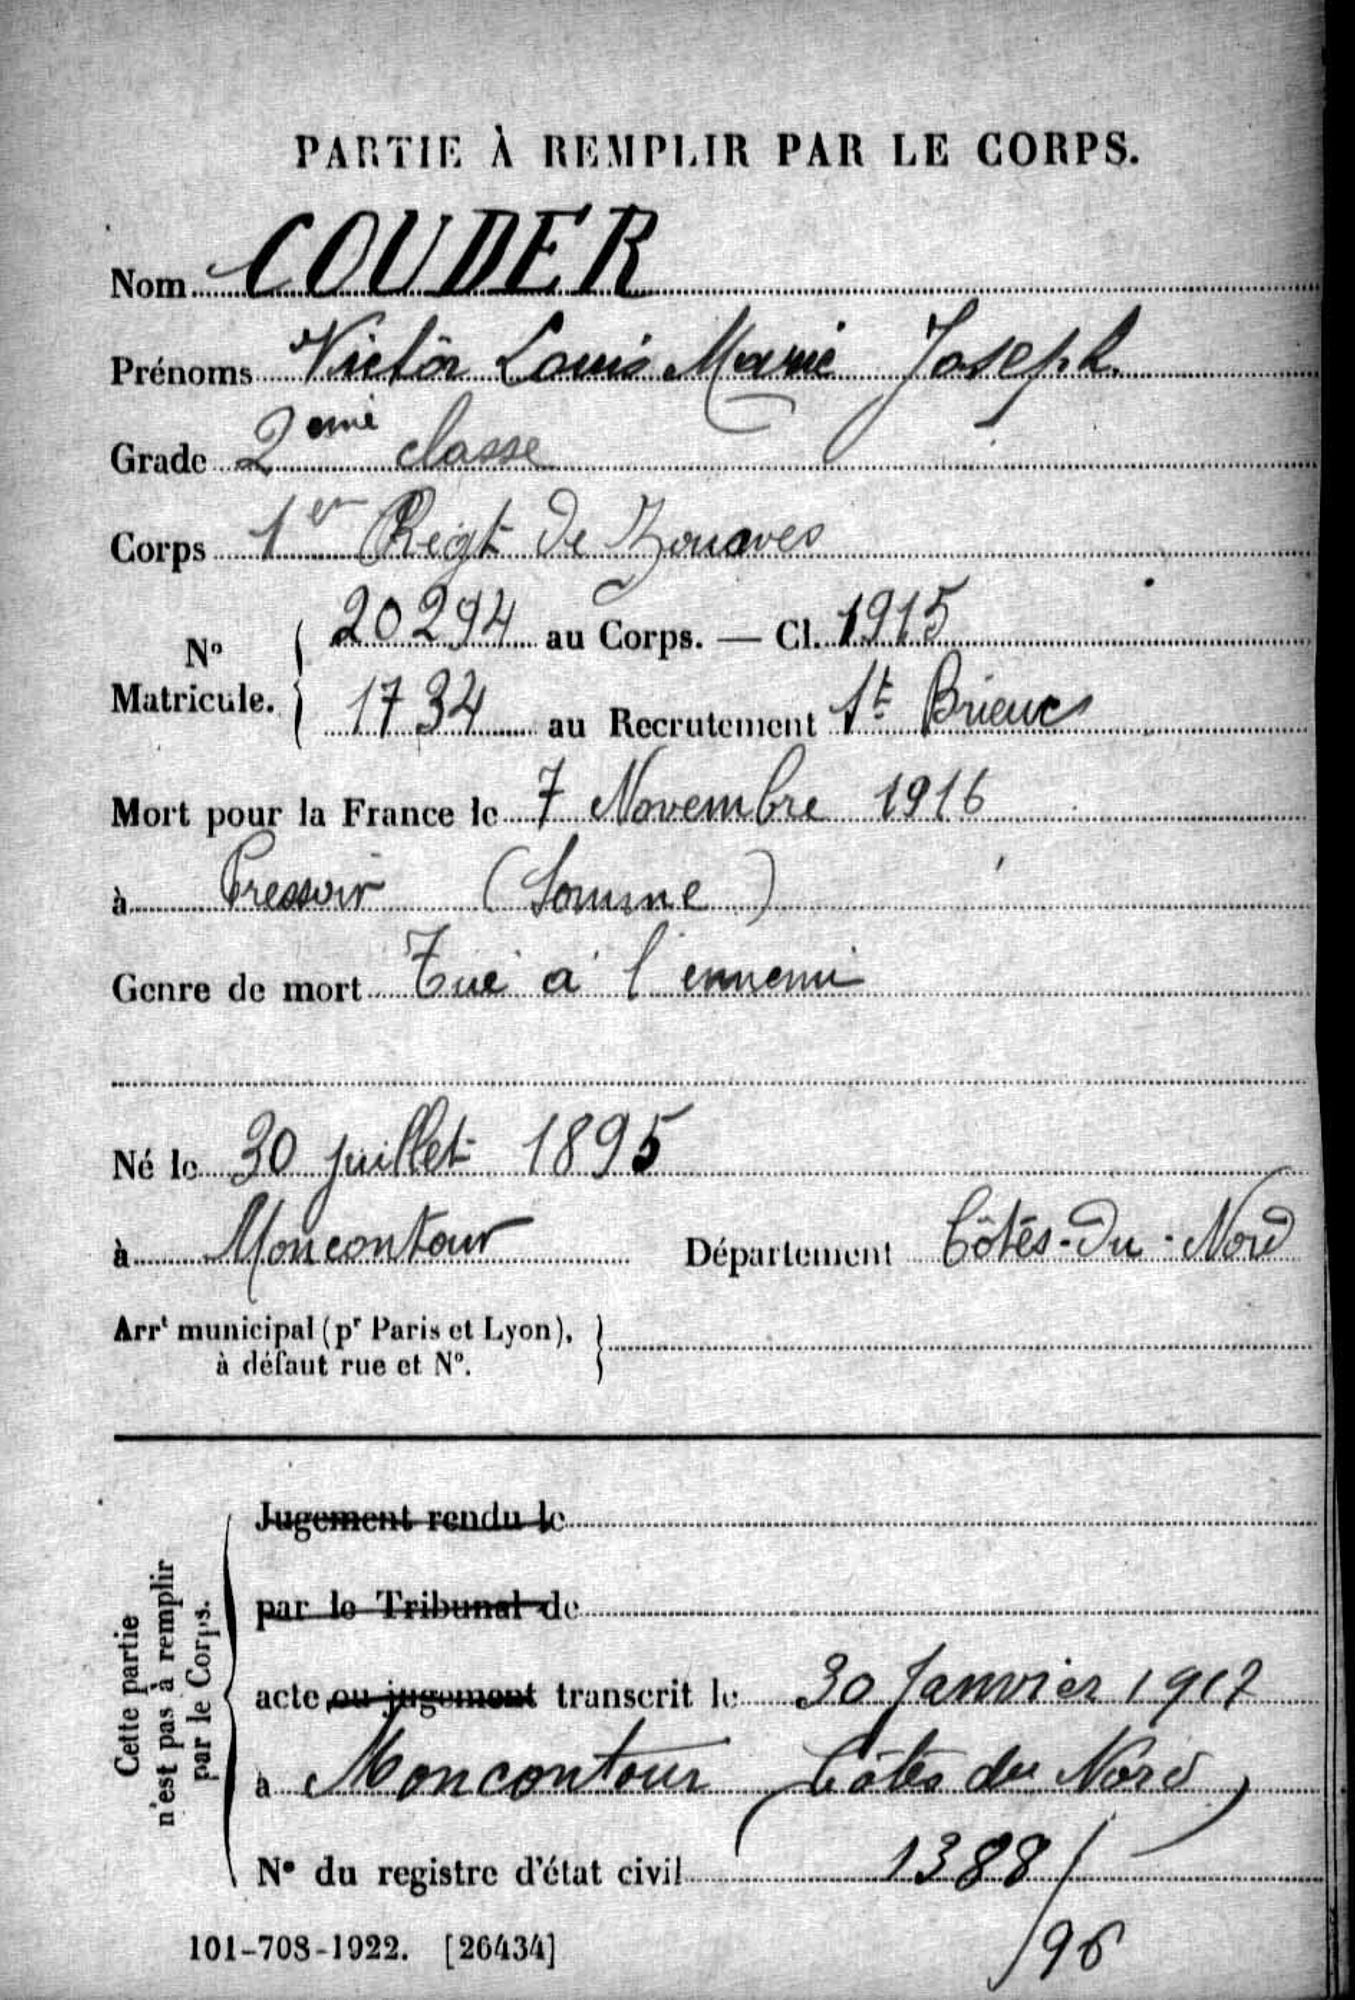 PARTIE À REMPLIR PAR LE CORPS.
Nom COUDER
Prénoms Victor Louis Marie Joseph
Grade 2eme classe
Corps 1er Régt de Zouaves
No Matricule. 20294 au Corps. — Cl. 1915
1734 au Recrutement St Brieuc
Mort pour la France le 7 Novembre 1916
à Pressoir (Somme)
Genre de mort Tué à l'ennemi
Né le 30 juillet 1895
à Moncontour Département Côtés-du-Nord
Arrt municipal (pr Paris et Lyon), à défaut rue et No.
Cette partie n'est pas à remplir par le Corps.
Jugement rendu le
par le Tribunal de
acte ou jugement transcrit le 30 Janvier 1917
à Moncontour (Côtes du Nord)
No du registre d'état civil 1388/
/96
101-708-1922. [26434]